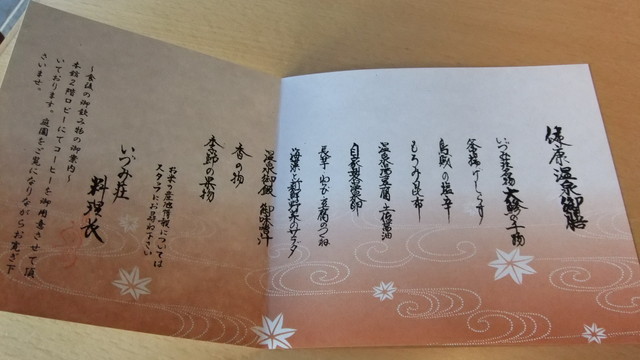 健康温泉御膳
いづみ荘名物 大鯵の干物
釜揚げしらす
烏賊の塩辛
もろみ昆布
温泉湯豆腐 土佐醤油
自家製温泉卵
長芋 わさび 豆腐の
海藻と新鮮野菜のサラダ
温泉御飯 御味噌汁
香の物
季節の果物
お米の産地情報については
スタッフにお尋ね下さい
いづみ荘 料理長
―食後の御飲み物の御案内―
本館2階ロビーにてコーヒーを御用意させて頂
いております。庭園をご覧になりながらお寛ぎ下
さいませ。